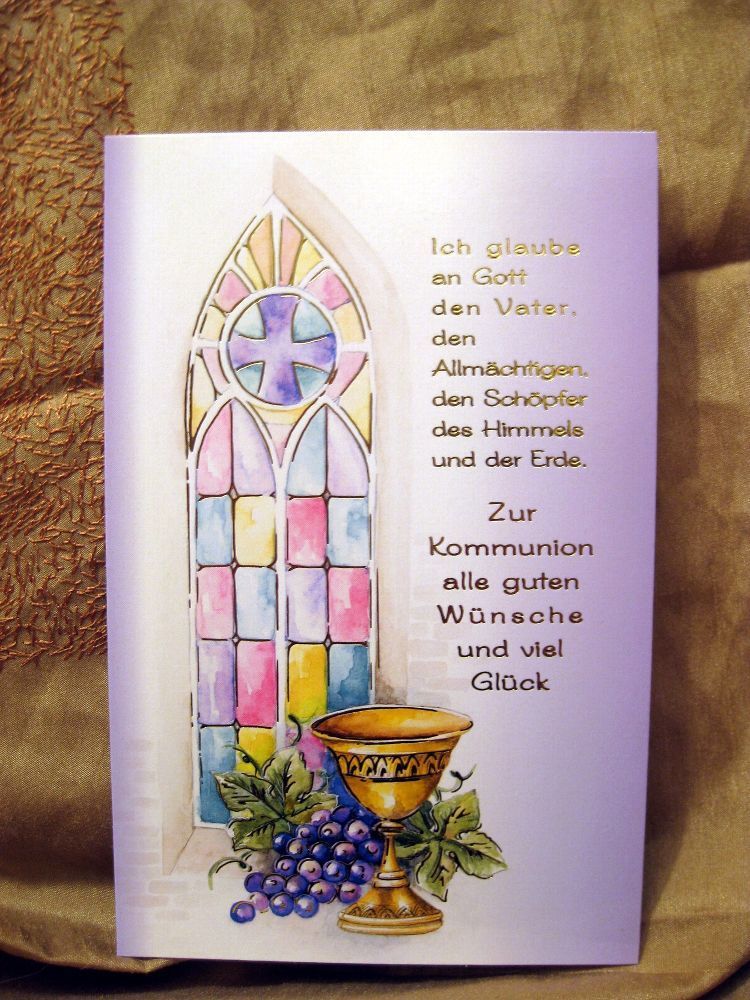 Ich glaube
an Gott
den Vater,
den
Allmächtigen,
den Schöpfer
des Himmels
und der Erde.
Zur
Kommunion
alle guten
Wünsche
und viel
Glück